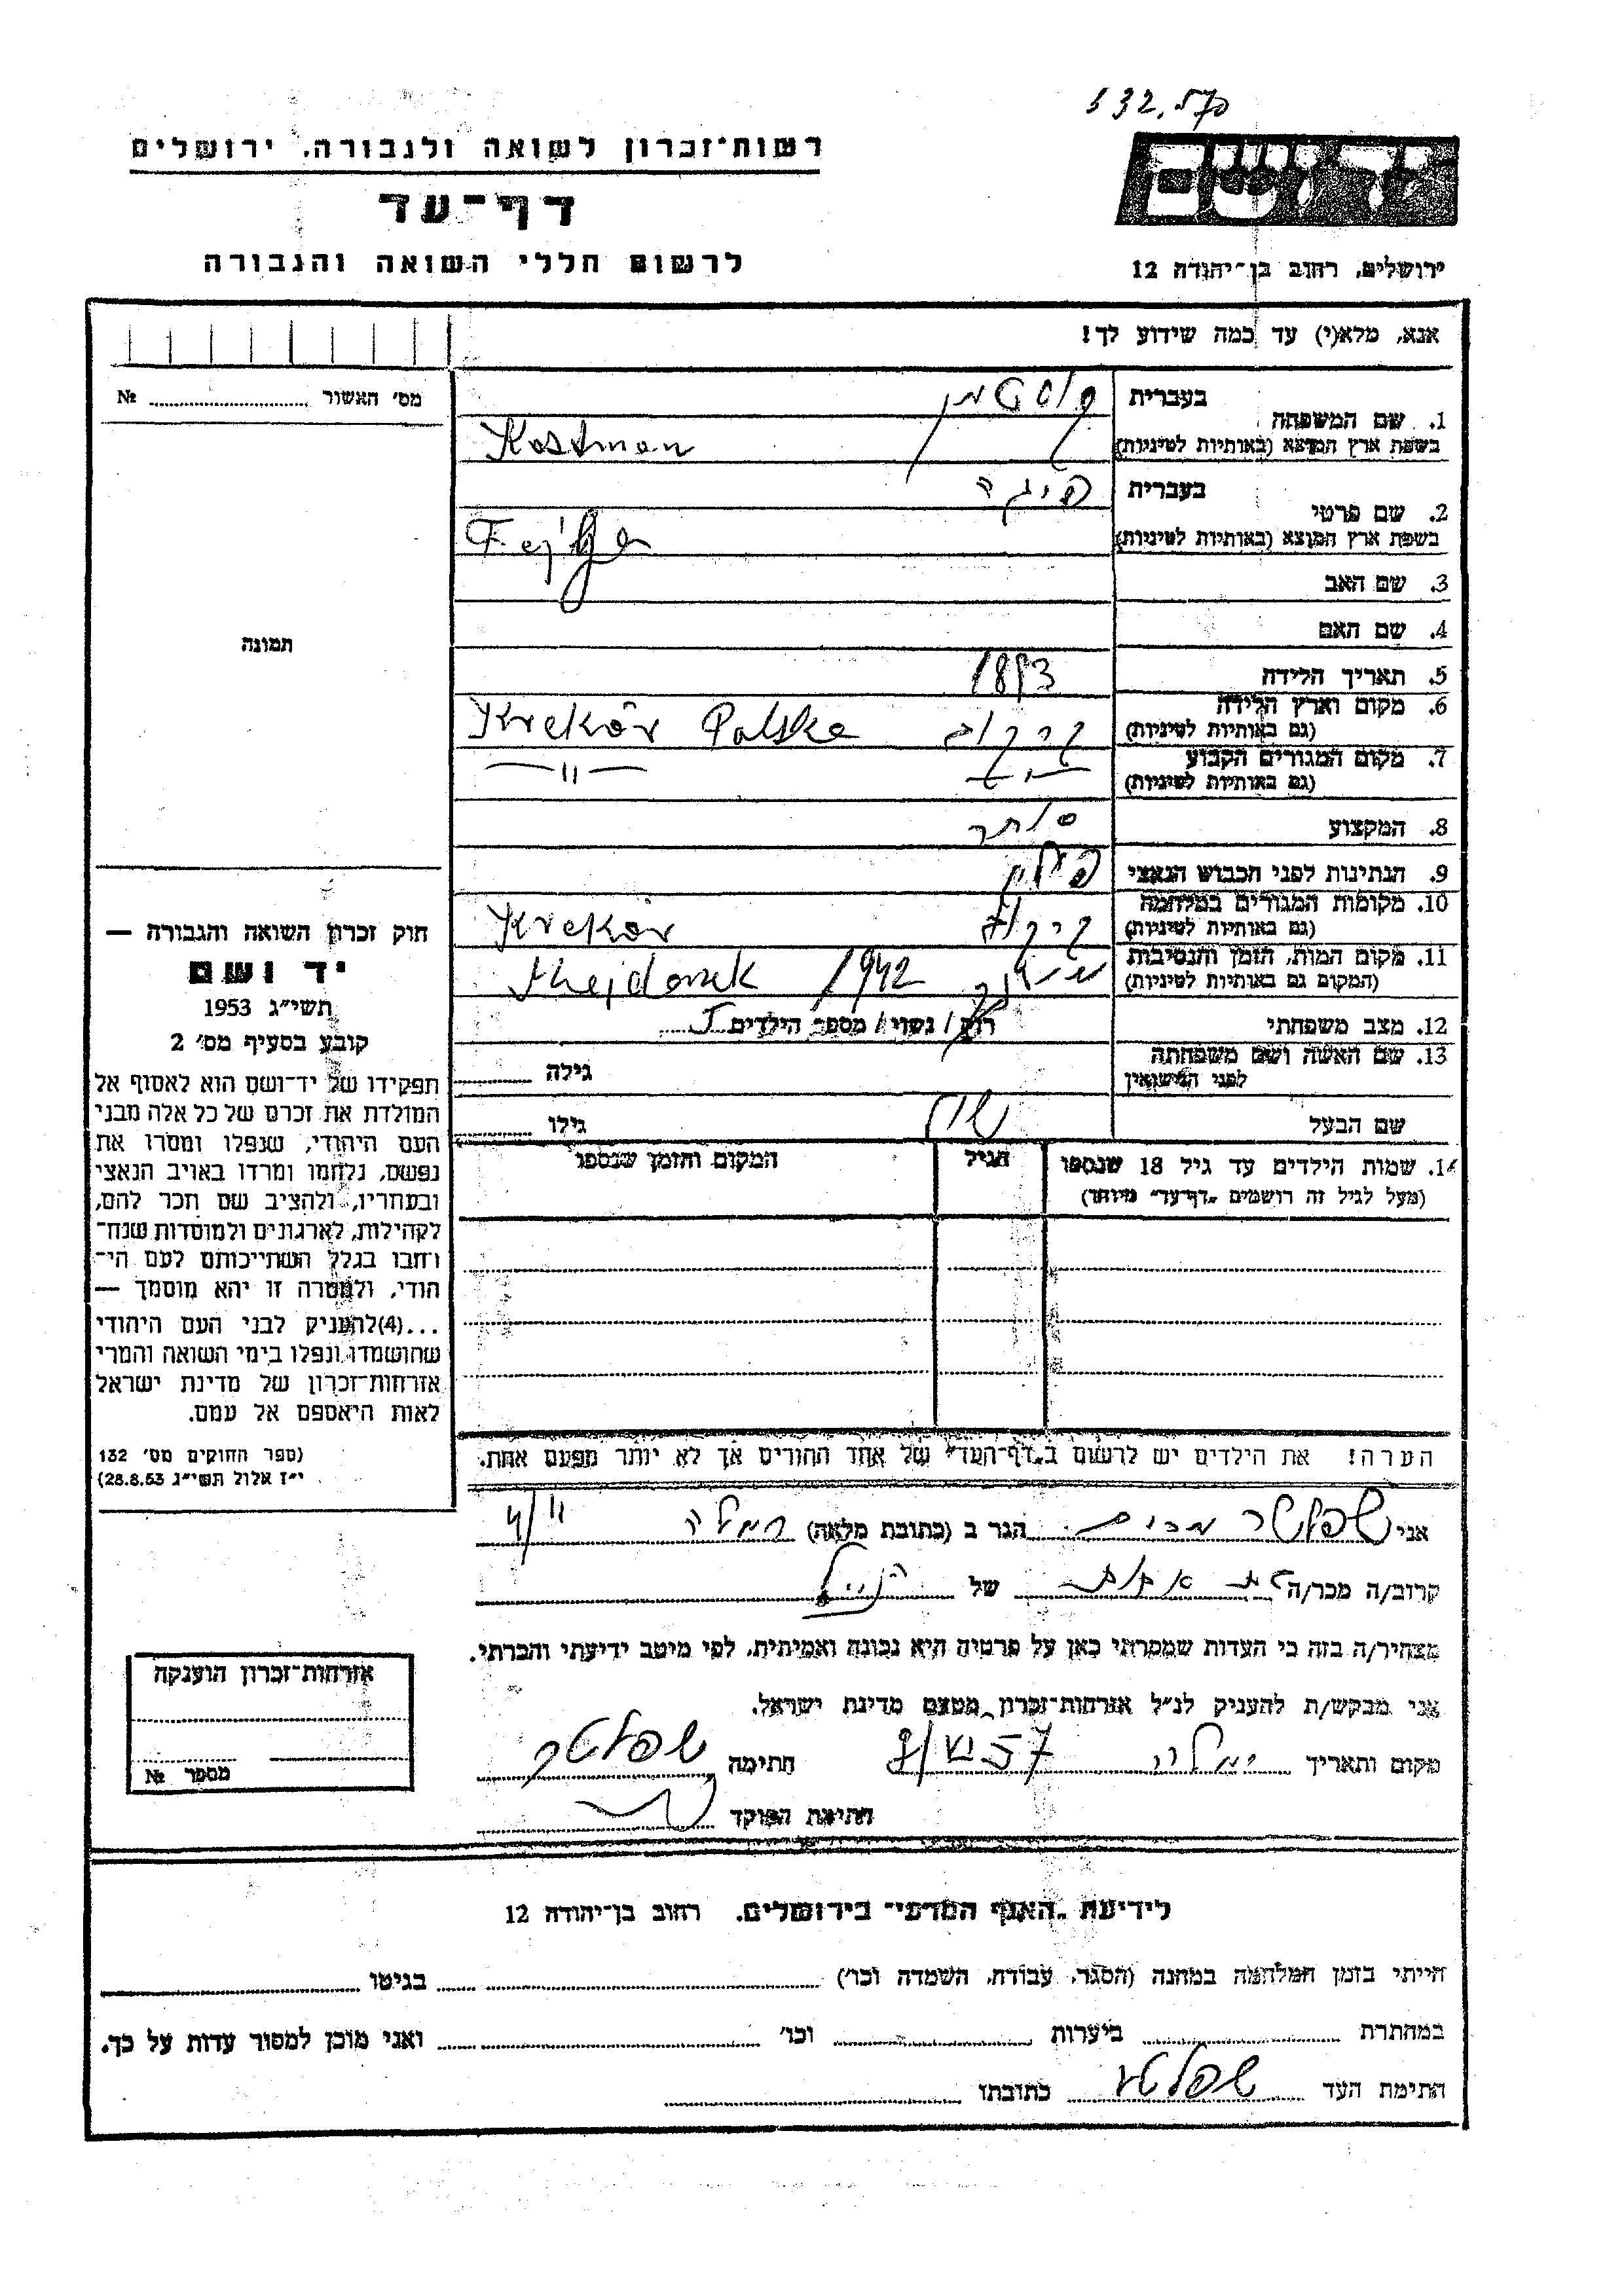 רשות־זכרון לשואה ולגבורה, ירושלים
דף־עד
לרשום חללי השואה והגבורה
יד ושם
ירושלים, רחוב בן־יהודה 12
אנא, מלא(י) עד כמה שידוע לך!
מס' האשור № 
תמונה
חוק זכרון השואה והגבורה —
יד ושם
תשי"ג 1953
קובע בסעיף מס' 2
תפקידו של יד־ושם הוא לאסוף אל
המולדת את זכרם של כל אלה מבני
העם היהודי, שנפלו ומסרו את
נפשם, נלחמו ומרדו באויב הנאצי
ובעוזריו, ולהציב שם וזכר להם,
לקהילות, לארגונים ולמוסדות שנח־
רבו בגלל השתייכותם לעם הי־
הודי, ולמטרה זו יהא מוסמך —
...(4)להעניק לבני העם היהודי
שהושמדו ונפלו בימי השואה והמרי
אזרחות־זכרון של מדינת ישראל
לאות היאספם אל עמם.
(ספר החוקים מס' 132
י"ז אלול תשי"ג 28.8.53)
1. שם המשפחה בעברית קוסטמן
בשפת ארץ המוצא (באותיות לטיניות) Kostman
2. שם פרטי בעברית פיגה
בשפת ארץ המוצא (באותיות לטיניות) Fejga
3. שם האב
4. שם האם
5. תאריך הלידה 1893
6. מקום וארץ הלידה (גם באותיות לטיניות) קרקוב Kraków Polska
7. מקום המגורים הקבוע (גם באותיות לטיניות) —"— —"—
8. המקצוע סוחר
9. הנתינות לפני הכבוש הנאצי פולין
10. מקומות המגורים במלחמה (גם באותיות לטיניות) קרקוב Krakór
11. מקום המות, הזמן והנסיבות (המקום גם באותיות לטיניות) Majdanek 1942
12. מצב משפחתי רווק/ נשוי/ מספר הילדים
13. שם האשה ושם משפחתה לפני הנישואין גילה
שם הבעל גילו
14. שמות הילדים עד גיל 18 שנספו הגיל המקום והזמן שנספו
(מעל לגיל זה רושמים "דף־עד" מיוחד)
הערה! את הילדים יש לרשום ב"דף־העד" של אחד ההורים אך לא יותר מפעם אחת.
אני שפלטר הגר ב (כתובת מלאה) רמלה
קרוב/ה מכר/ה של הנ"ל
מצהיר/ה בזה כי העדות שמסרתי כאן על פרטיה היא נכונה ואמיתית, לפי מיטב ידיעתי והכרתי.
אני מבקש/ת להעניק לנ"ל אזרחות־זכרון מטעם מדינת ישראל.
מקום ותאריך רמלה 57 חתימה שפלטר
חתימת הפוקד
אזרחות־זכרון הוענקה
מספר №
לידיעת "האגף המדעי" בירושלים, רחוב בן־יהודה 12
הייתי בזמן המלחמה במחנה (הסגר, עבודה, השמדה וכו') בגיטו
במחתרת ביערות וכו' ואני מוכן למסור עדות על כך.
חתימת העד שפלטר כתובתו